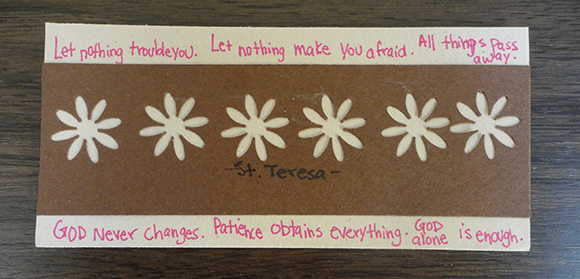 Let nothing trouble you. Let nothing make you afraid. All things pass away.
-St. Teresa-
GOD Never changes. Patience obtains everything. GOD alone is enough.